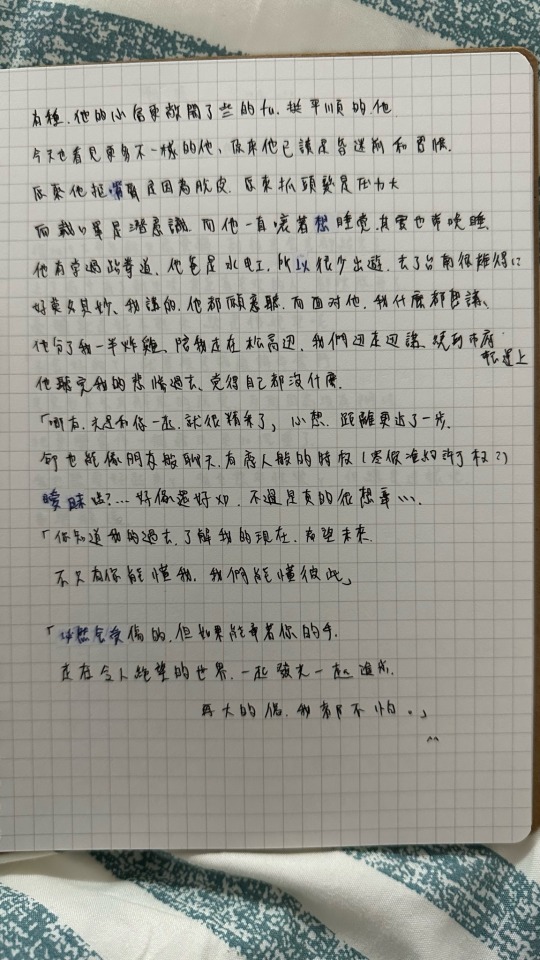 有種,他的心房更敞開了些的fu,挺平順的他
今天也看見更多不一樣的他,原來他已讀是
原來他摳嘴唇是因為脫皮,原來抓頭髮是壓力大
而戴口罩是潛意識,而他一直哀著想睡覺,其實也準晚睡,
他有學過跆拳道,他爸是水电工,所以很少出遊,去了台南很難得::
好莫名其妙,我講的,他都願意聽,而面對他,我什麼都想講、
他分了我一半炸雞、陪我走在松高边,我們边走边講、繞到市府
轉運上
他聽完我的悲慘過去、覺得自己都沒什麼,
「哪有,光是和你一起,就很精采了」心想,距離更近了一步,
卻也能像朋友般聊天,有戀人般的特权(
曖昧嗎?⋯好像還好xD,不過是真的很想牽⋯
「你知道我的過去,了解我的現在,希望未來
不只有你能懂我,我們能懂彼此」
「必然會受傷的,但如果能牽著你的手,
走在令人絕望的世界,一起發光一起
再大的傷,我都不怕。」
^^